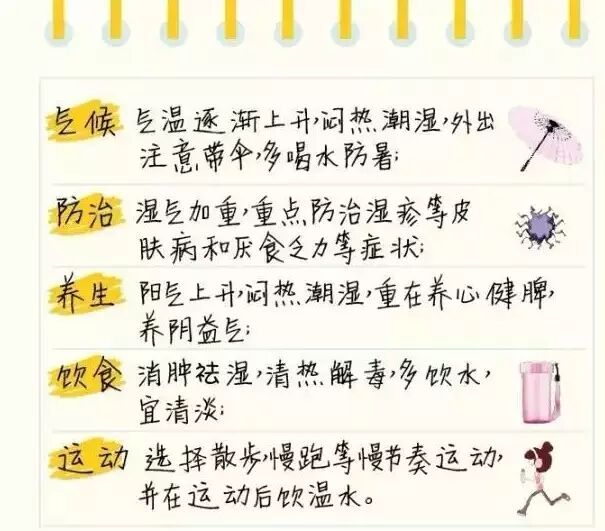 气候 气温逐渐上升,闷热潮湿,外出
注意带伞,多喝水防暑;
防治 湿气加重,重点防治湿疹等皮
肤病和厌食乏力等症状;
养生 阳气上升,闷热潮湿,重在养心健脾,
养阴益气;
饮食 消肿祛湿,清热解毒,多饮水,
宜清淡;
运动 选择散步,慢跑等慢节奏运动,
并在运动后饮温水。